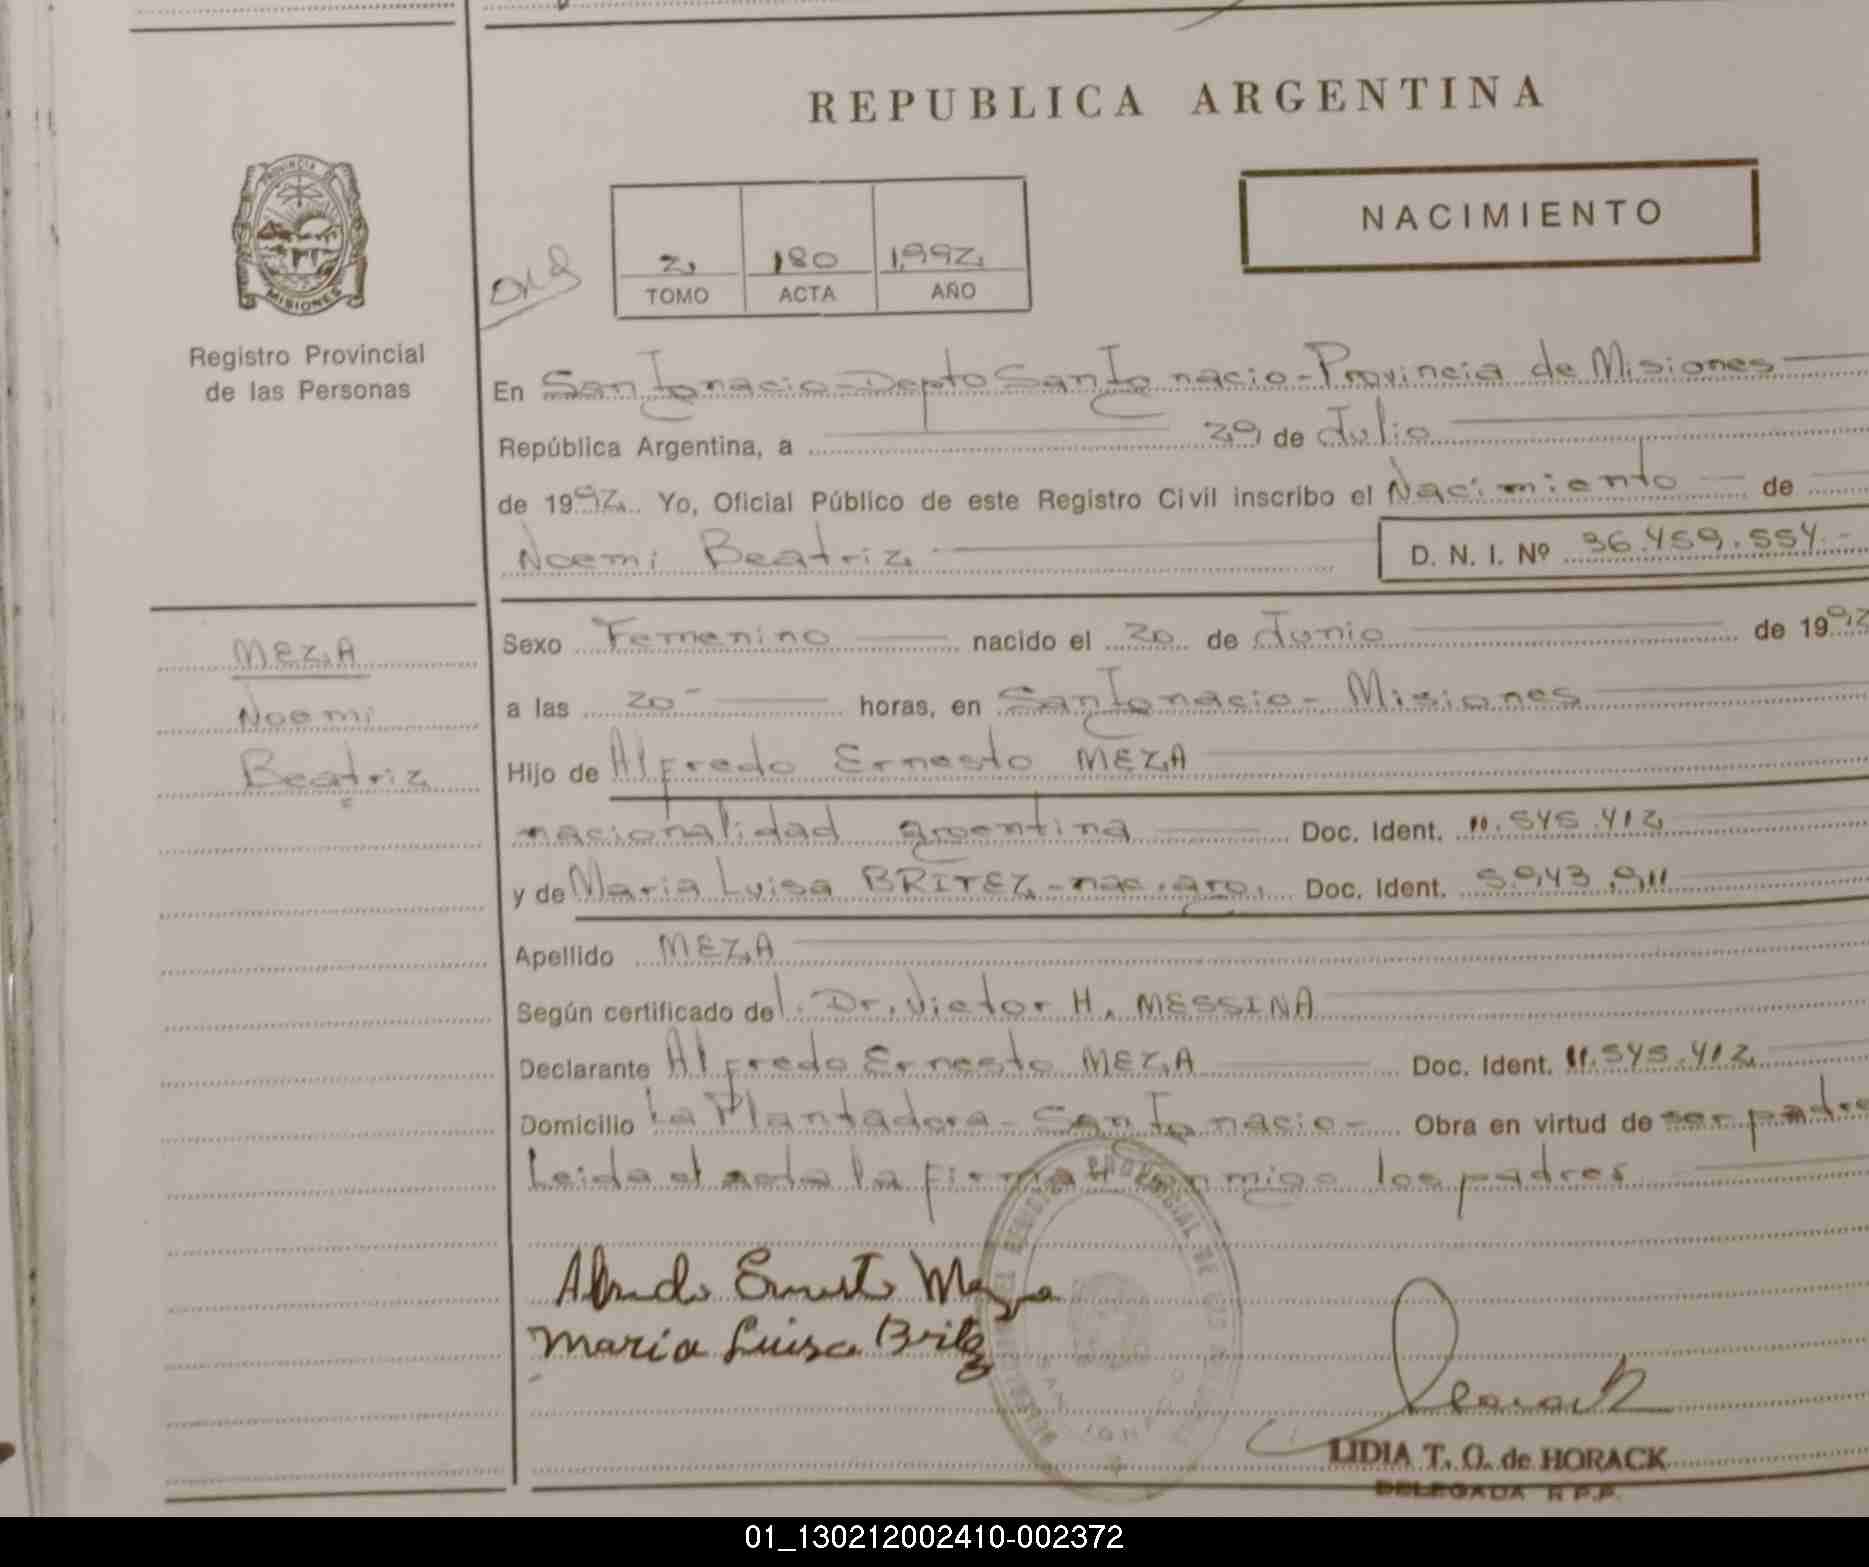 REPUBLICA ARGENTINA
NACIMIENTO
PROVINCIA
MISIONES
Registro Provincial
de las Personas
2, 180 1,992,
TOMO ACTA AÑO
En San Ignacio - Depto San Ignacio - Provincia de Misiones
República Argentina, a 29 de Julio
de 1992, Yo, Oficial Público de este Registro Civil inscribo el Nacimiento de
Noemi Beatriz D. N. I. Nº 36.459.554.-
Sexo Femenino nacido el 20 de Junio de 1992
a las 20- horas, en San Ignacio - Misiones
Hijo de Alfredo Ernesto MEZA
nacionalidad argentina Doc. Ident. 11.545.412
y de Maria Luisa BRITEZ - nac. arg. Doc. Ident.
Apellido MEZA
Según certificado del. Dr. Victor H. MESSINA
Declarante Alfredo Ernesto MEZA Doc. Ident. 11.545.412
Domicilio La Plantadora - San Ignacio - Obra en virtud de ser padre
Leida el acta la firman conmigo los padres
MEZA
Noemi
Beatriz
Alfredo Ernesto Meza
Maria Luisa Britez
LIDIA T. O. de HORACK
DELEGADA R.P.P.
01_130212002410-002372